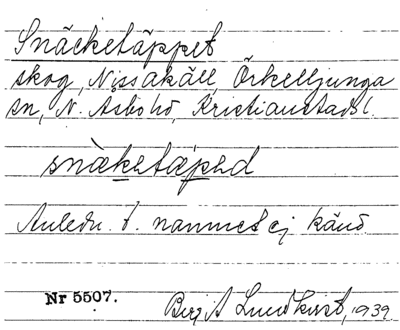 Snäcketäppet
skog, Nissakäll, Örkelljunga
sn, N. Åsbo hd, Kristianstads l.
snäketäped
Anledn. t. namnet ej känd
Nr 5507.
Birgit Lundkvist, 1939